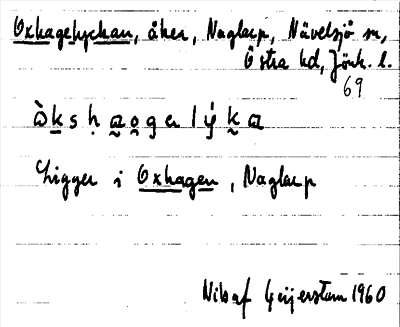 Oxhagelyckan, åker, Naglarp, Nävelsjö sn,
Östra hd, Jönk. l.
69
Ligger i Oxhagen, Naglarp
Nils af Geijerstam 1960